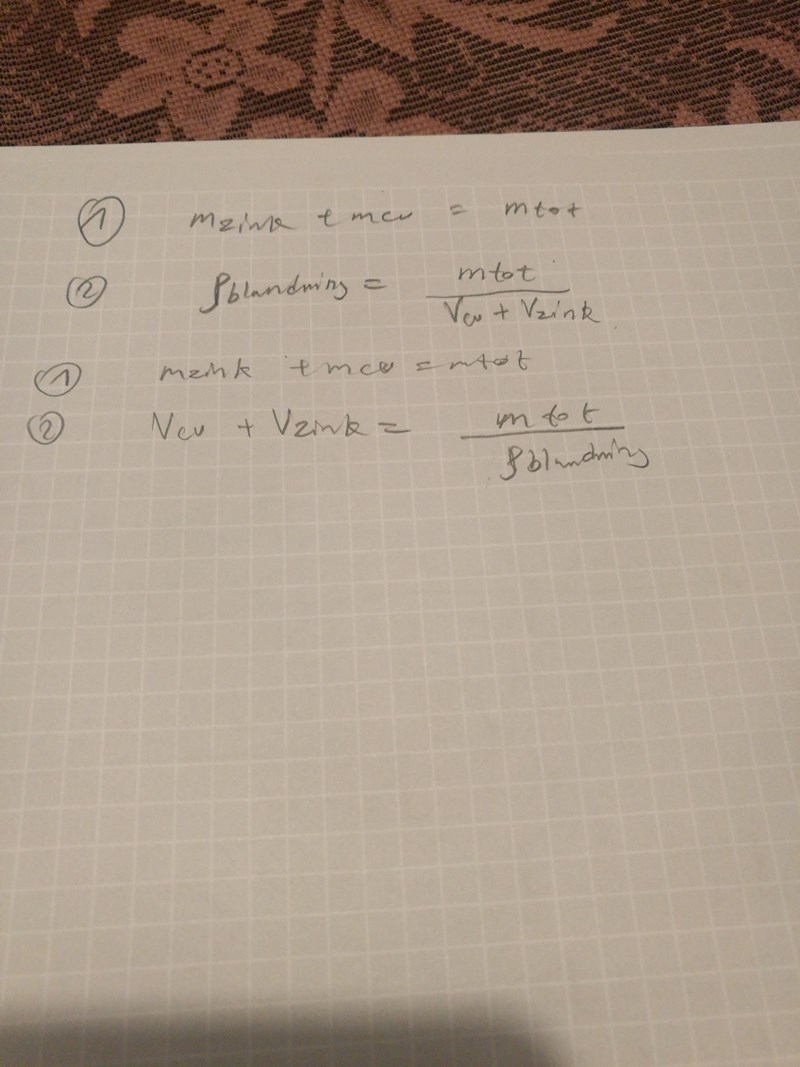 ① mzink + mcu = mtot
② ρblandning = mtot / Vcu + Vzink
① mzink + mcu = mtot
② Vcu + Vzink = mtot / ρblandning